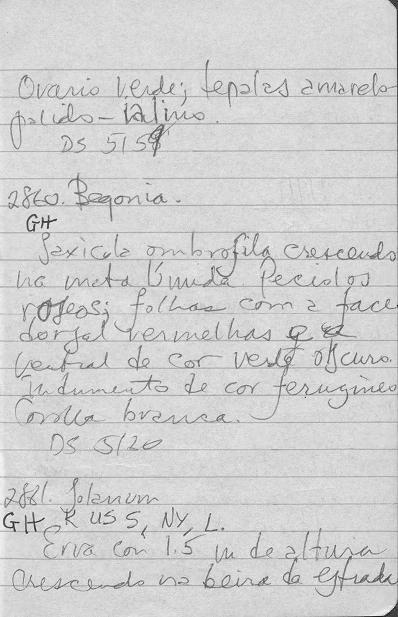 Ovario verde; tepalas amarelo-
palido-
DS 515
2860. Begonia.
GH
Saxicola ombrofila crescendo
na mata úmida. Peciolos
roseos; folhas com a face
dorsal vermelhas e a
ventral de cor verde oscuro.
Indumento de cor ferugineo
Corolla branca.
DS 5/20
2861. Solanum
GH, R US S, NY, L.
Erva con 1.5 m de altura
crescendo na beira da estrada